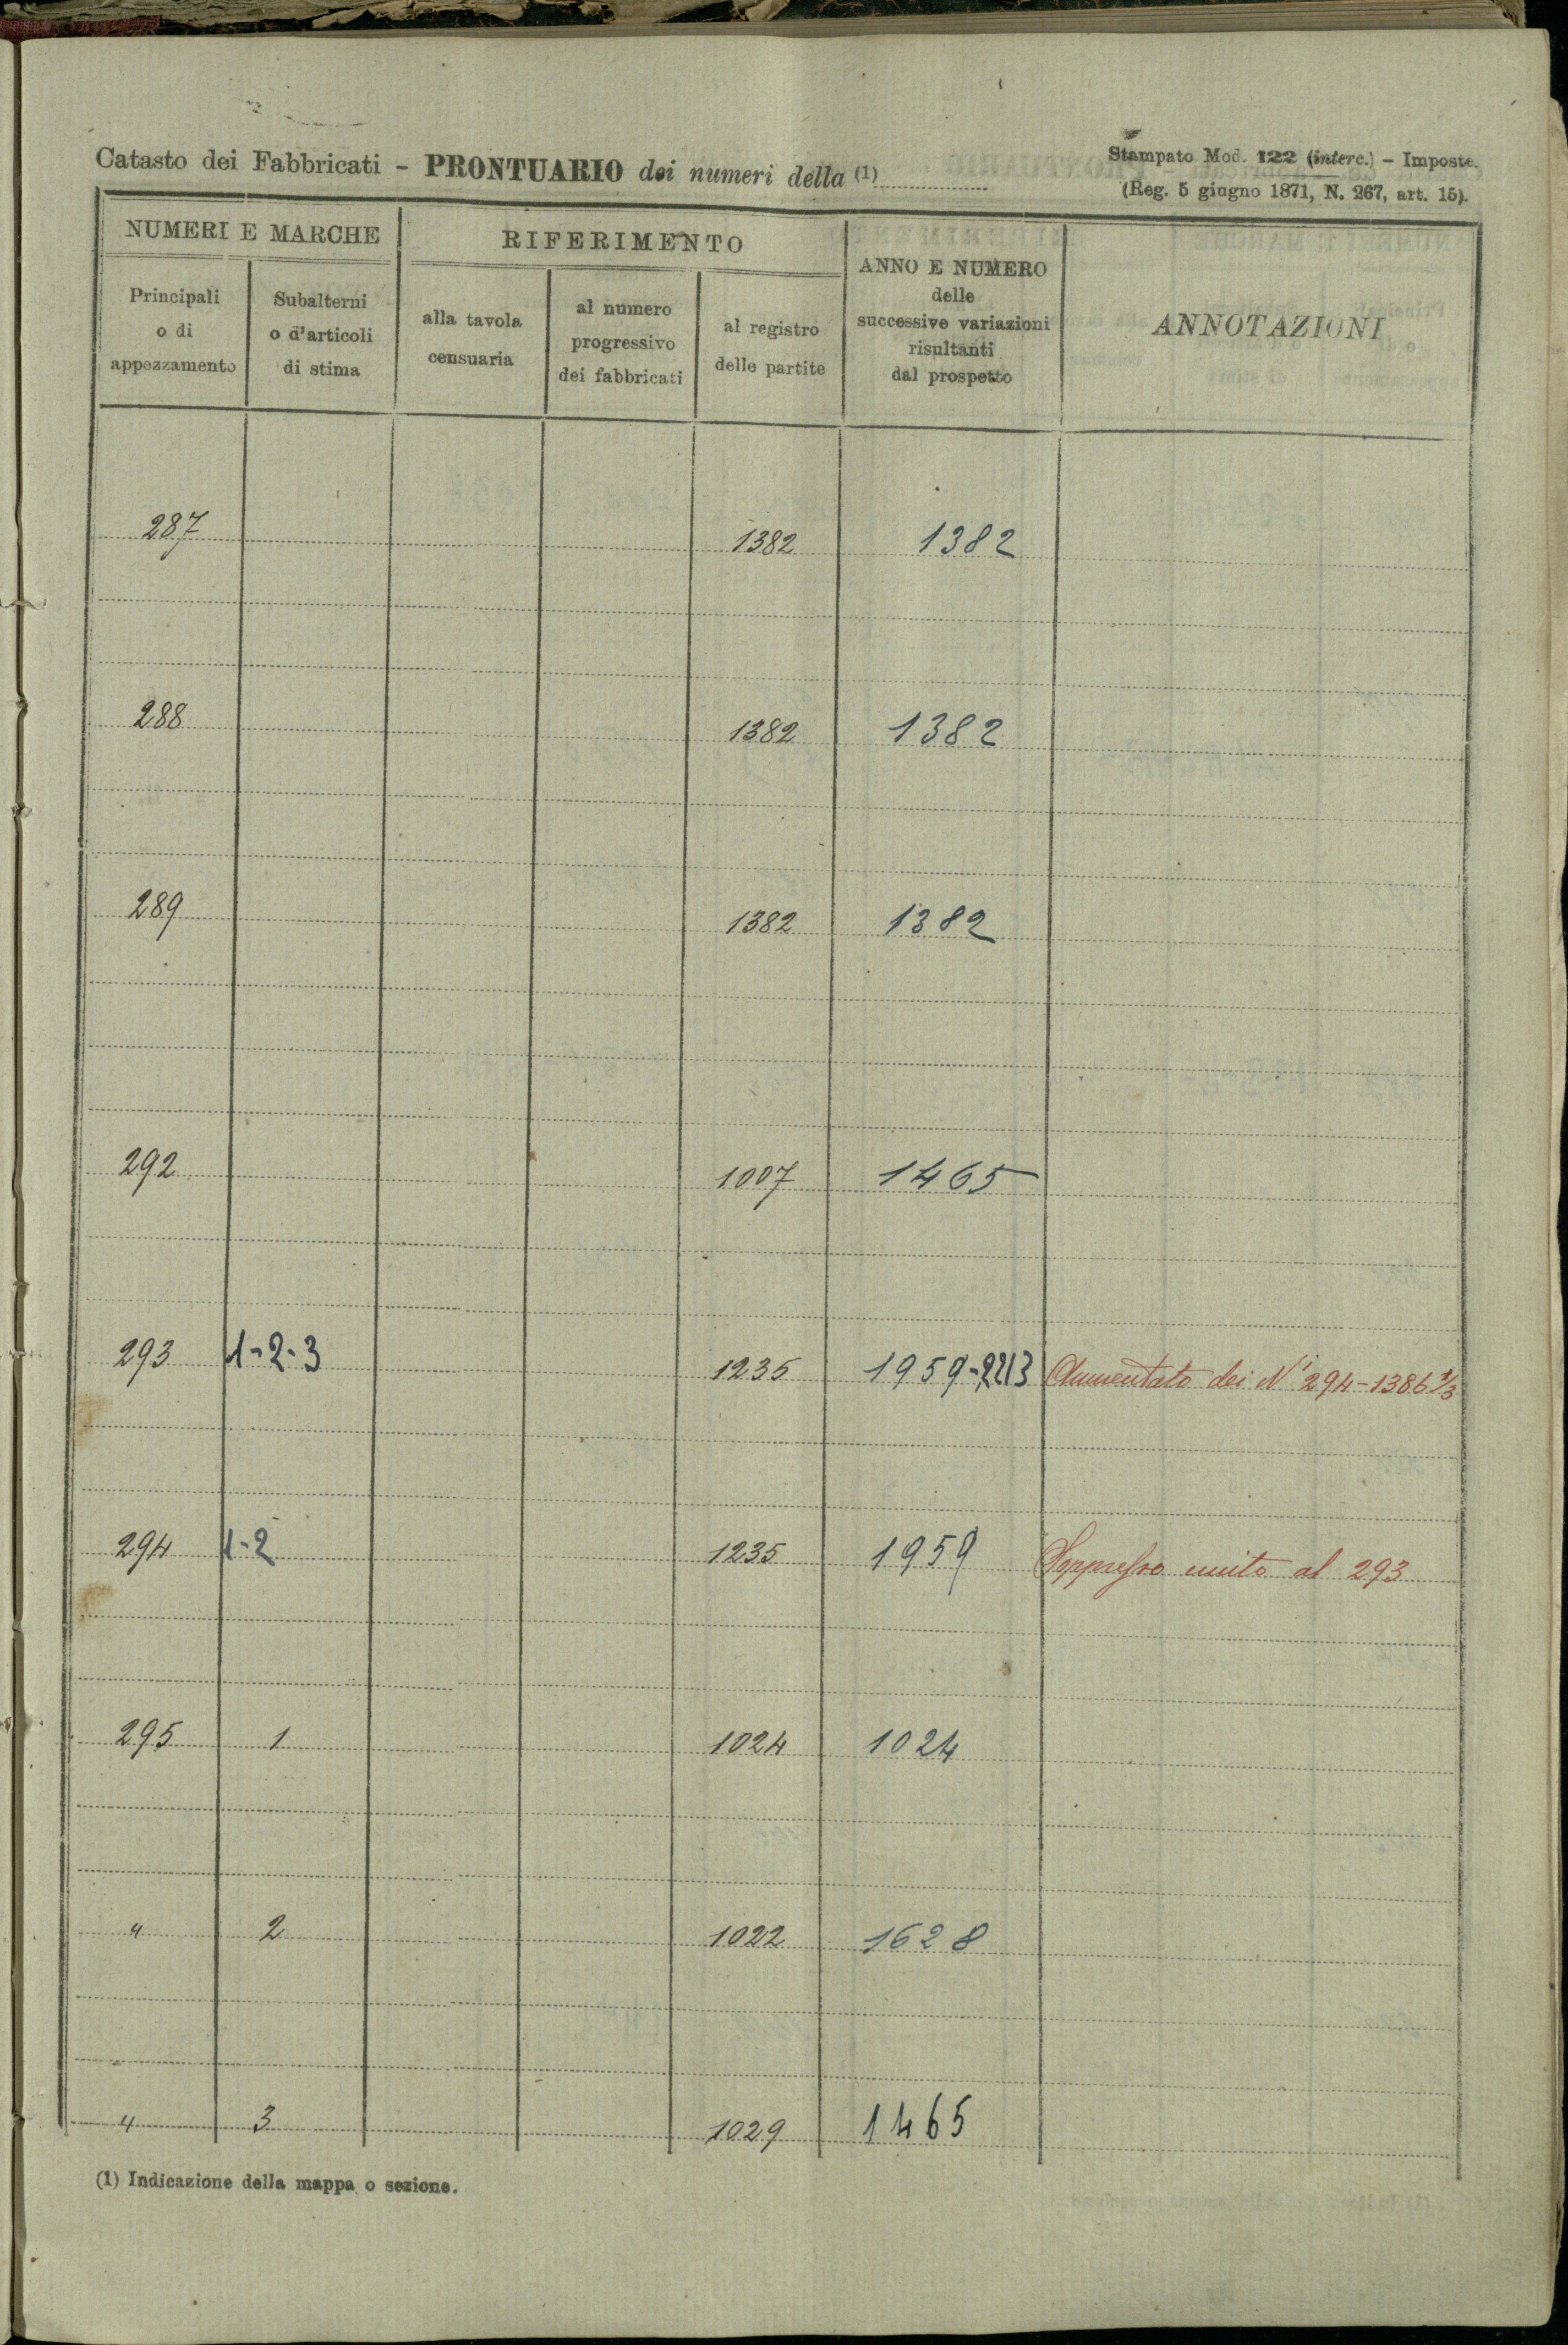 Catasto dei Fabbricati - PRONTUARIO dei numeri della (1)
Stampato Mod. 122 (interc.) - Imposte.
(Reg. 5 giugno 1871, N. 267, art. 15).
NUMERI E MARCHE
RIFERIMENTO
ANNO E NUMERO
delle
successive variazioni
risultanti
dal prospetto
ANNOTAZIONI
Principali
o di
appezzamento
Subalterni
o d'articoli
di stima
alla tavola
censuaria
al numero
progressivo
dei fabbricati
al registro
delle partite
287 1382 1382
288 1382 1382
289 1382 1382
292 1007 1465
293 1-2-3 1235 1959-2213 Aumentato dei Ni 294-1386 2/3
294 1-2 1235 1959 Soppresso unito al 293
295 1 1024 1024
" 2 1022 1628
" 3 1029 1465
(1) Indicazione della mappa o sezione.